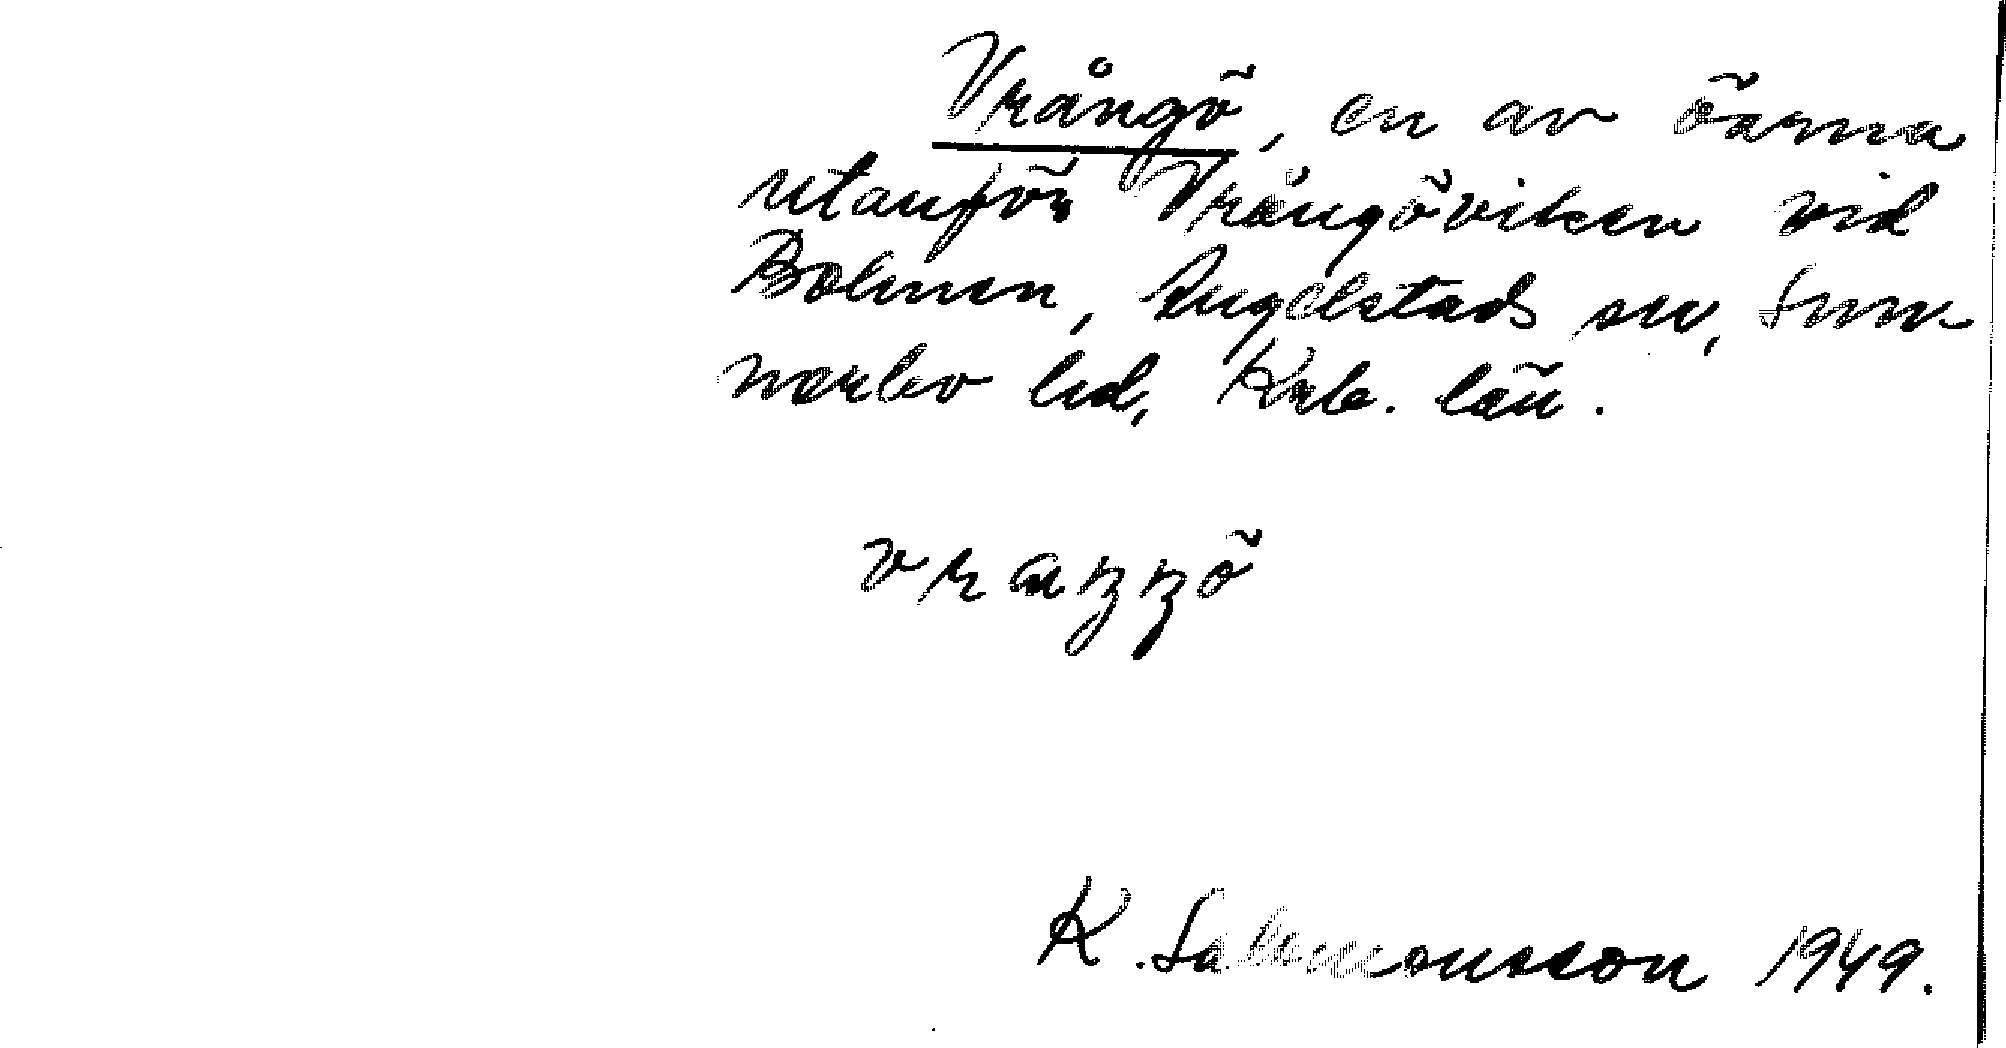 Vrångö, en av öarna
utanför Vrångöviken vid
Bolmen, Angelstads sn, Sun-
nerbo hd, Krb. län.
vraŋŋö
K. Salomonsson 1949.